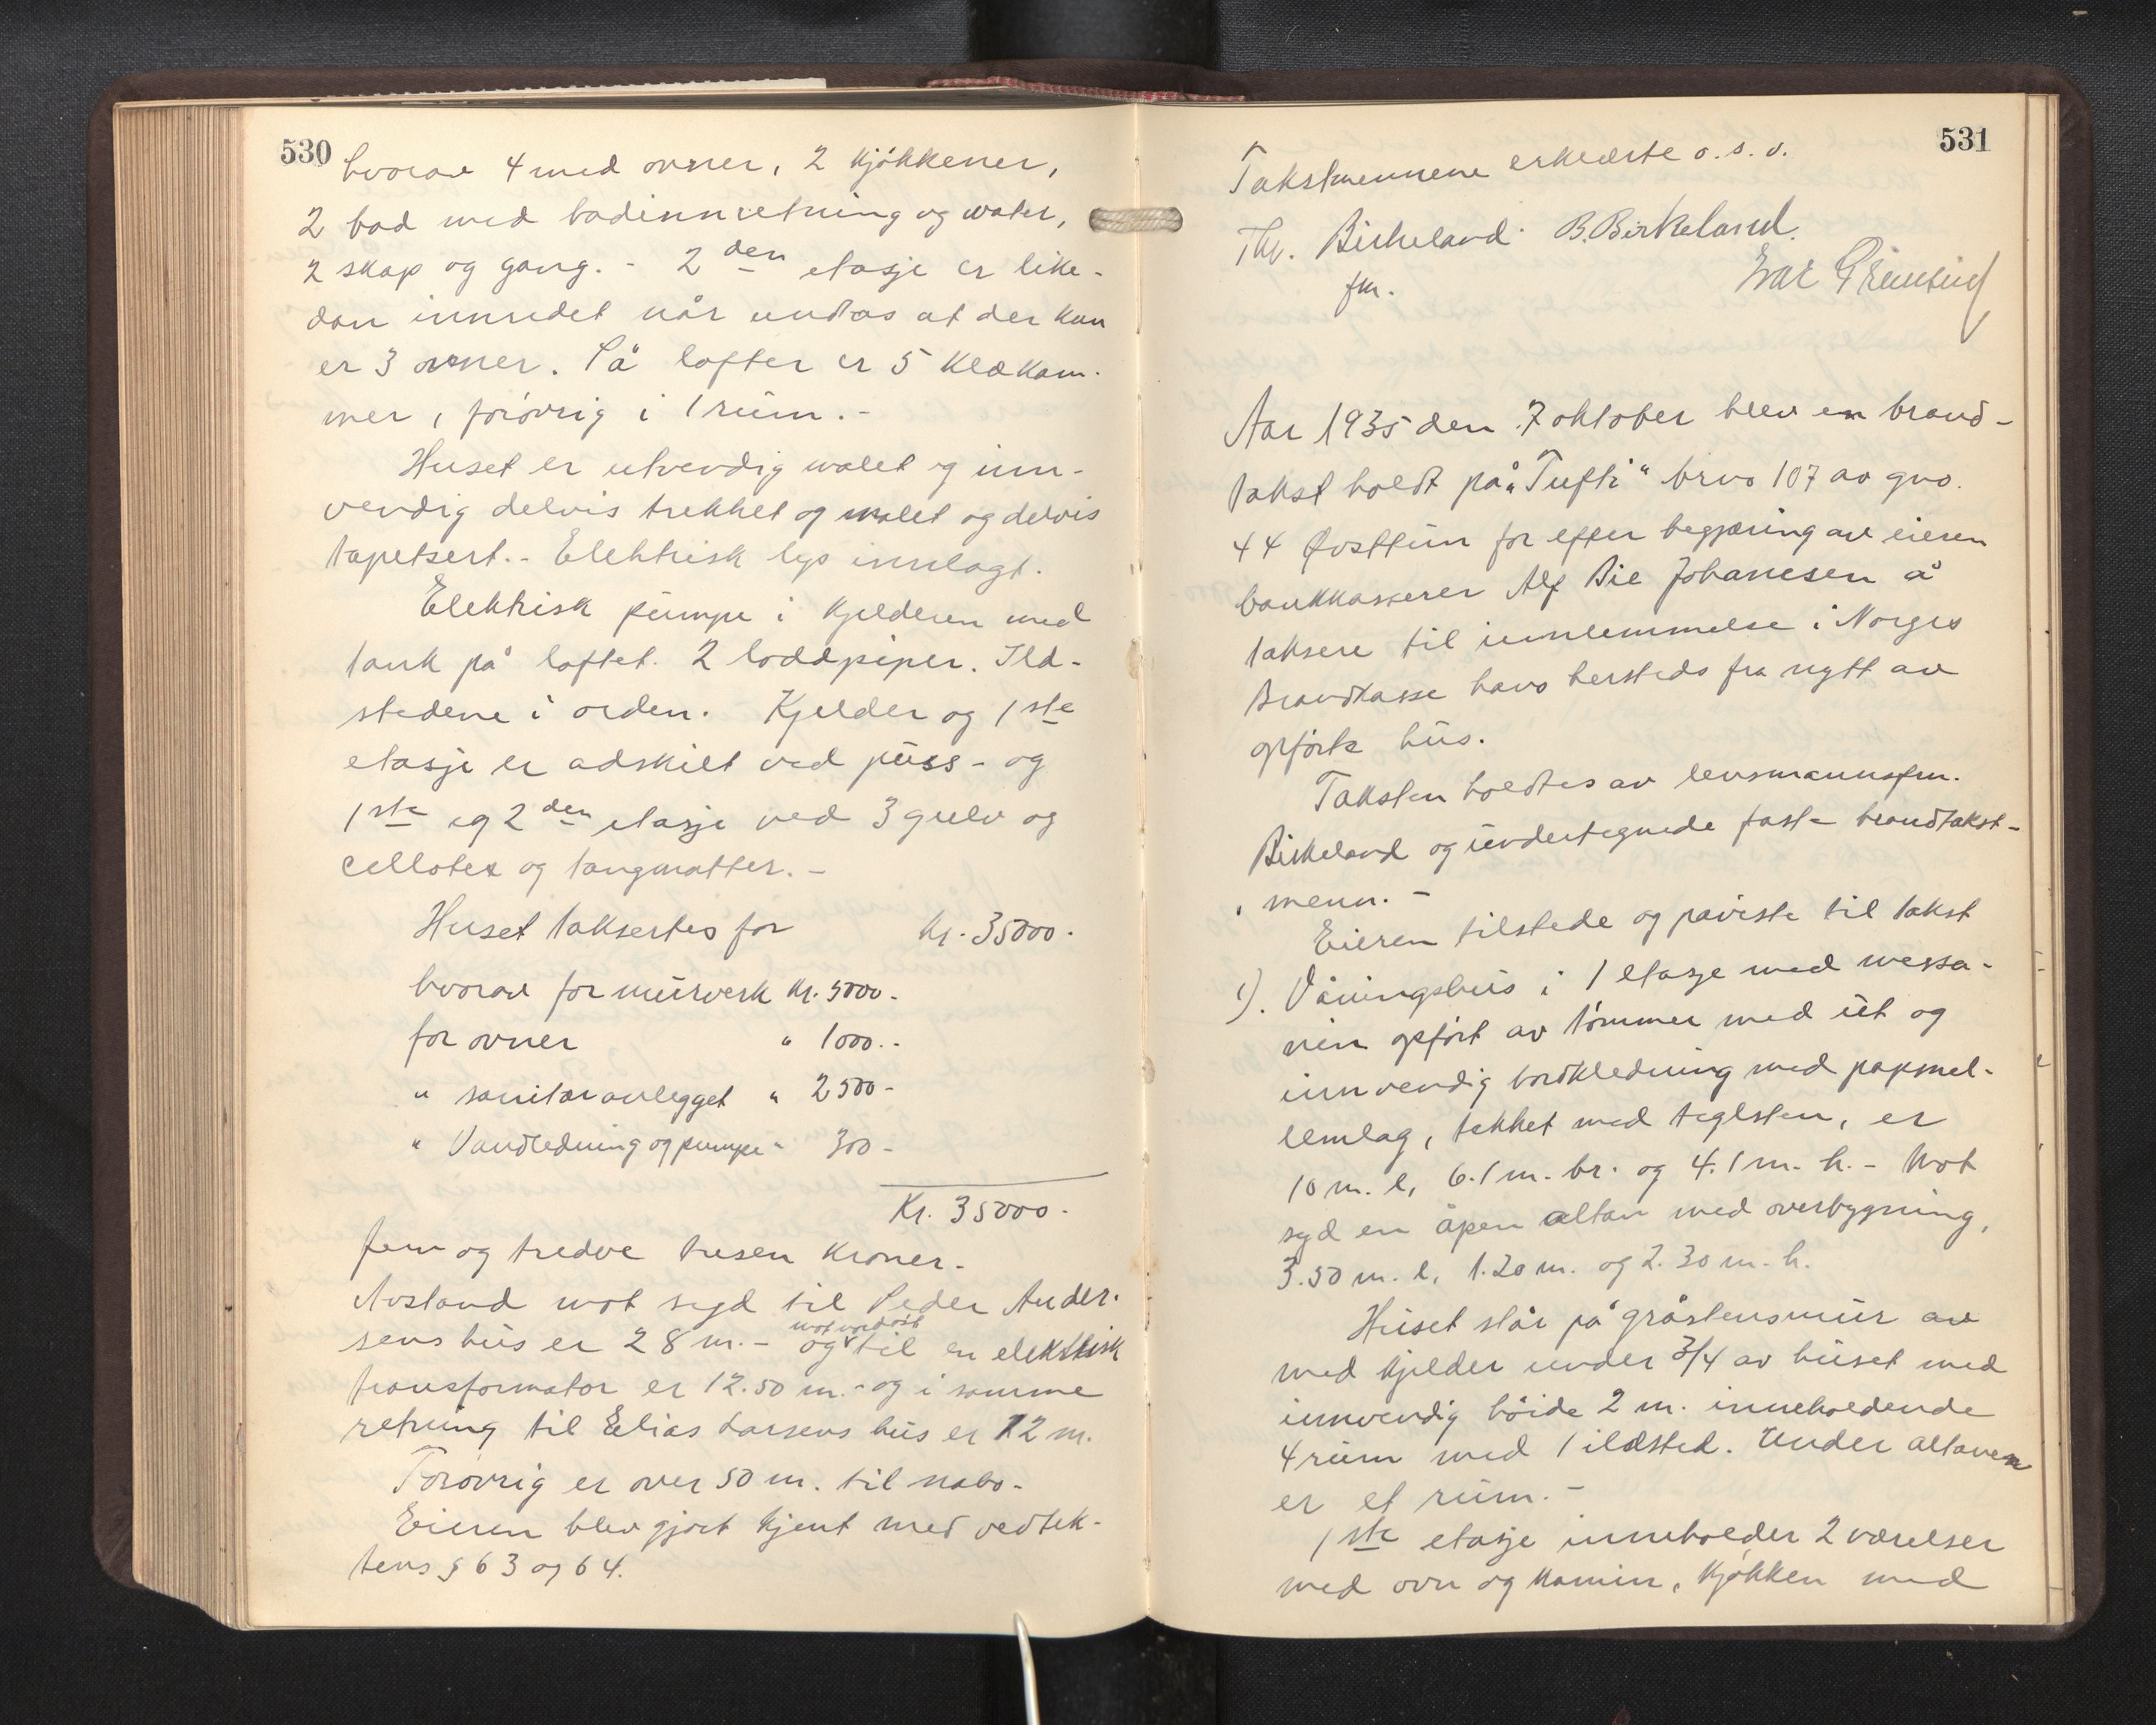 530
hvorav 4 med ovner, 2 kjøkkener,
2 bad med badinnretning og water,
2 skap og gang. - 2den etasje er like-
dan innredet når undtas at der kun
er 3 ovner. På lofter er 5 klækam-
mer, forøvrig i 1 rum. -
Huset er utvendig malet og inn-
vendig delvis trekket og malet og delvis
tapetsert. - Elektrisk lys innlagt.
Elektrisk pumpe i kjelderen med
tank på loftet. 2 loddpiper. Ild-
stedene i orden. Kjelder og 1ste
etasje er adskilt ved puss - og
1ste og 2den etasje ved 3 gulv og
cellotex og tangmatter. -
Huset taksertes for kr. 35000.
hvorav for murverk kr. 5000.-
for ovner " 1000.-
" sanitæranlegget " 2500-
" Vandledning og pumpe " 300-
Kr. 35000.
fem og tredve tusen kroner.
Avstand mot syd til Peder Ander-
sens hus er 28 m. - og mot nordøst til en elektrisk
transformator er 12.50 m. - og i samme
retning til Elias Larsens hus er 12 m.
Forøvrig er over 50 m. til nabo.
Eieren blev gjort kjent med vedtek-
tens § 63 og 64.
531
Takstmennene erklærte o. s. v.
Th. Birkeland. B. Birkeland.
fm.
Aar 1935 den 7 oktober blev en brand-
takst holdt på "Tufti" brno 107 av gno.
44 Øvsttun for efter begjæring av eieren
bankkasserer Alf Bie Johanesen å
taksere til innlemmelse i Norges
Brandkasse hans hersteds fra nytt av
opførte hus.
Taksten holdtes av lensmannsfm.
Birkeland og undertegnede faste brandtakst-
menn. -
Eieren tilstede og påviste til takst
1). Våningshus i 1 etasje med messa-
nin opført av tømmer med ut og
innvendig bordkledning med papmel-
lemlag, tekket med teglsten, er
10 m. l, 6.1 m. br. og 4.1 m. h. - Mot
syd en åpen altan med overbygning,
3.50 m. l, 1.20 m. og 2.30 m. h.
Huset står på gråstensmur av
med kjelder under 3/4 av huset med
innvendig høide 2 m. inneholdende
4 rum med 1 ildsted. Under altanen
er et rum. -
1ste etasje inneholder 2 værelser
med ovn og kamin, kjøkken med